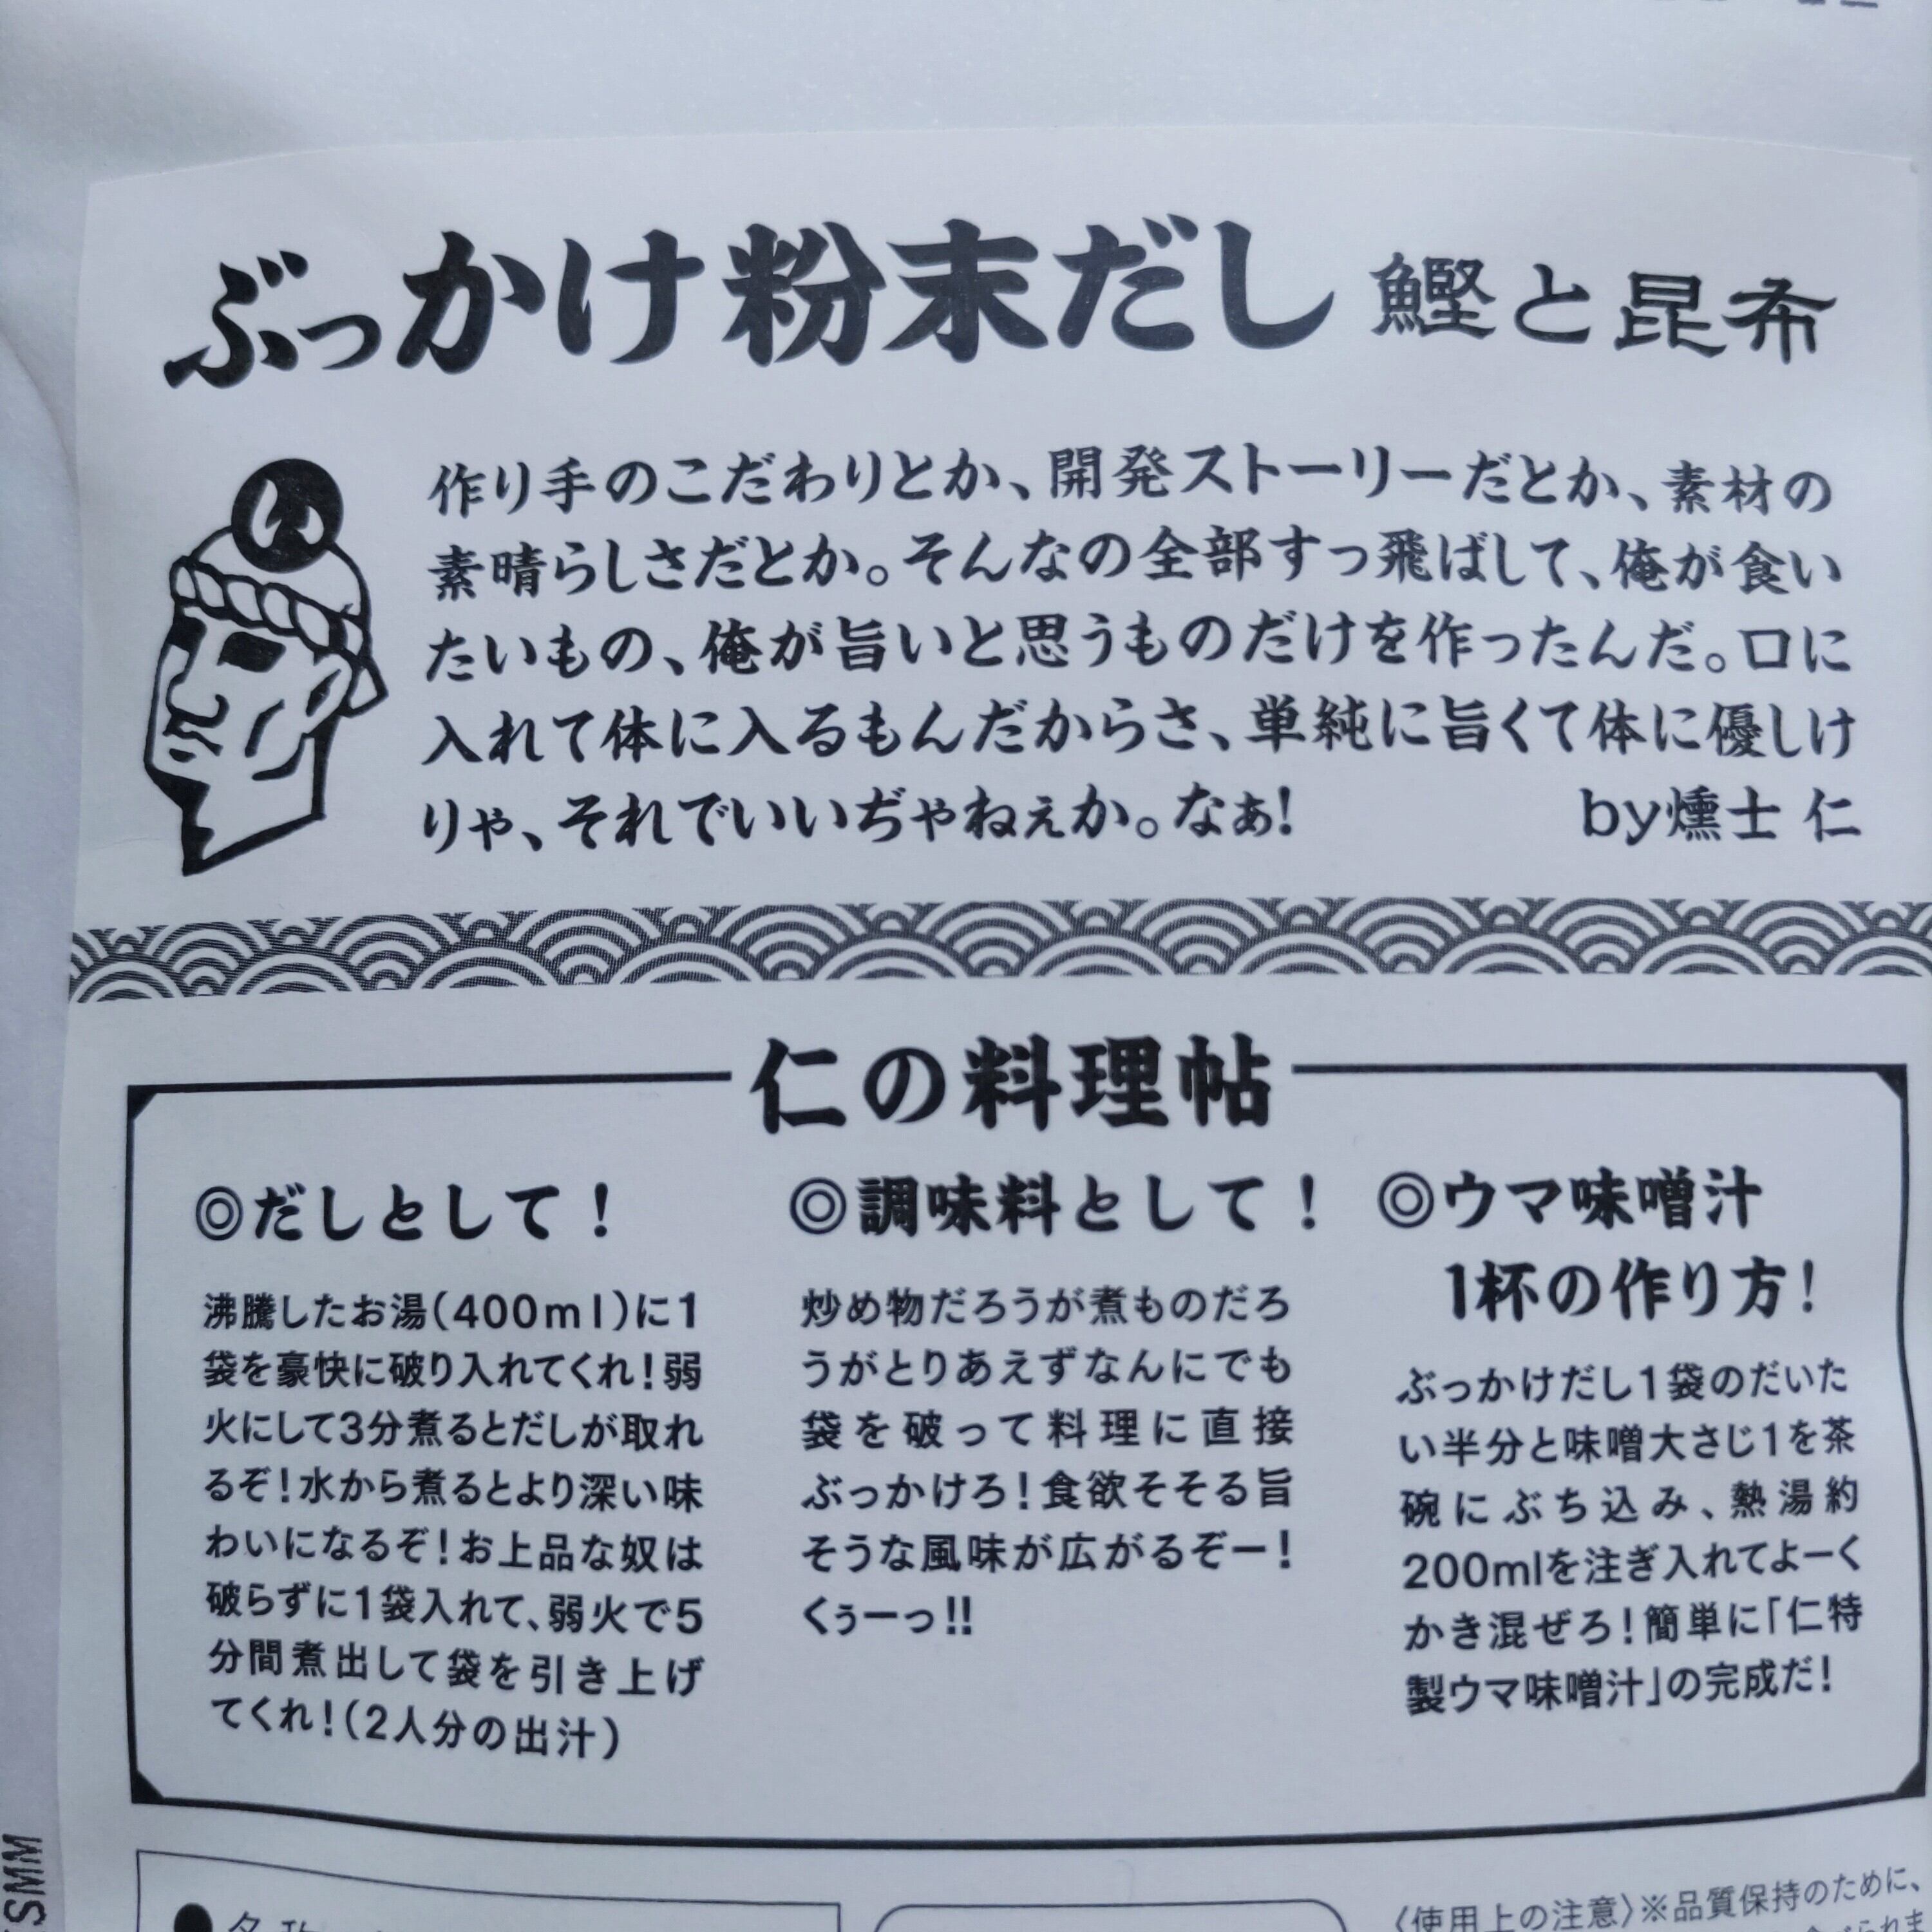 ぶっかけ粉末だし 鰹と昆布
作り手のこだわりとか、開発ストーリーだとか、素材の
素晴らしさだとか。そんなの全部すっ飛ばして、俺が食い
たいもの、俺が旨いと思うものだけを作ったんだ。口に
入れて体に入るもんだからさ、単純に旨くて体に優しけ
りゃ、それでいいぢゃねぇか。なぁ!
by燻士 仁
仁の料理帖
◎だしとして!
沸騰したお湯(400ml)に1
袋を豪快に破り入れてくれ!弱
火にして3分煮るとだしが取れ
るぞ!水から煮るとより深い味
わいになるぞ!お上品な奴は
破らずに1袋入れて、弱火で5
分間煮出して袋を引き上げ
てくれ!(2人分の出汁)
◎調味料として!
炒め物だろうが煮ものだろ
うがとりあえずなんにでも
袋を破って料理に直接
ぶっかけろ!食欲そそる旨
そうな風味が広がるぞー!
くぅーっ!!
◎ウマ味噌汁
1杯の作り方!
ぶっかけだし1袋のだいた
い半分と味噌大さじ1を茶
碗にぶち込み、熱湯約
200mlを注ぎ入れてよーく
かき混ぜろ!簡単に「仁特
製ウマ味噌汁」の完成だ!
〈使用上の注意〉※品質保持のために、